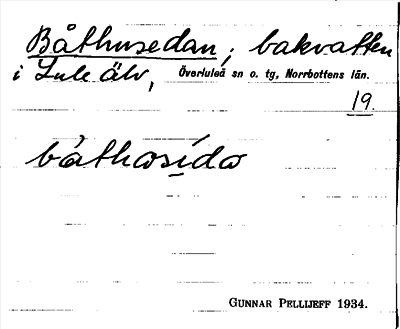 Båthusedan; bakvatten
i Lule älv, Överluleå sn o. tg, Norrbottens län.
19.
båthasída
GUNNAR PELLIJEFF 1934.